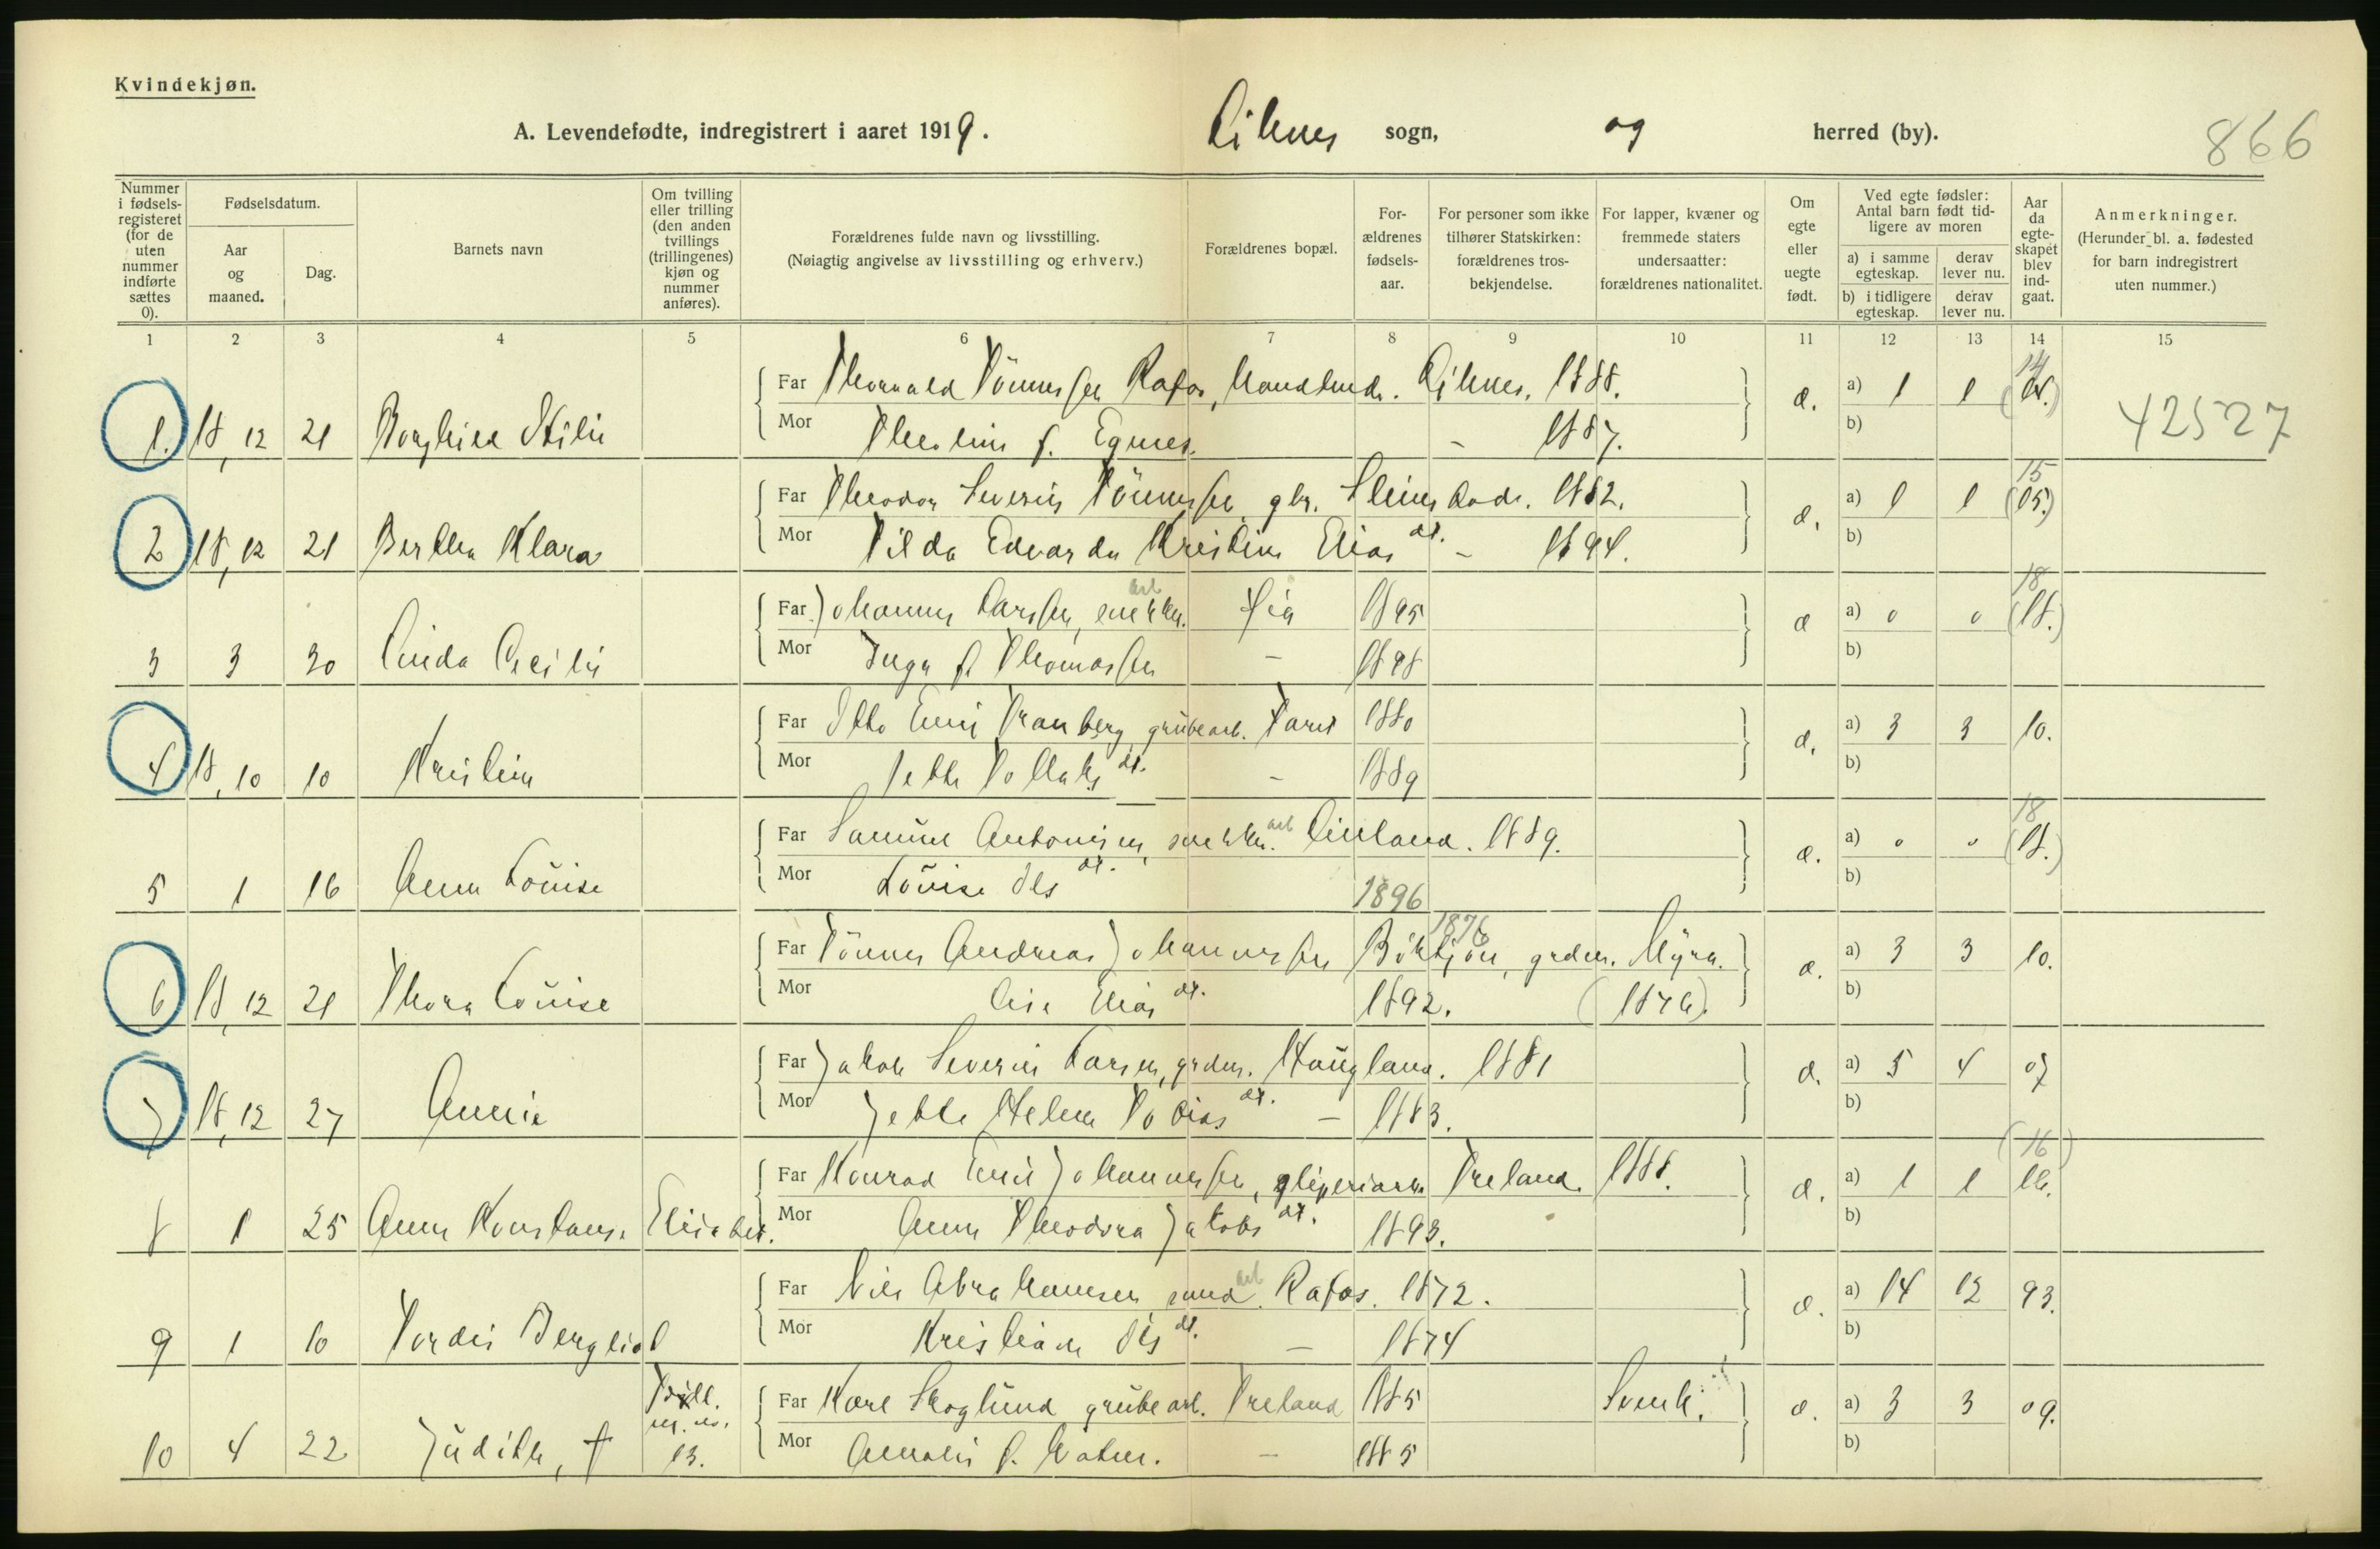 Kvindekjøn.
A. Levendefødte, indregistrert i aaret 1919. Liknes sogn, og herred (by). 866
Nummer i fødselsregisteret (for de uten nummer indførte sættes 0).
Fødselsdatum.
Aar og maaned.
Dag.
Barnets navn
Om tvilling eller trilling (den anden tvillings (trillingenes) kjøn og nummer anføres).
Forældrenes fulde navn og livsstilling.
(Nøiagtig angivelse av livsstilling og erhverv.)
Forældrenes bopæl.
Forældrenes fødselsaar.
For personer som ikke tilhører Statskirken: forældrenes trosbekjendelse.
For lapper, kvæner og fremmede staters undersaatter: forældrenes nationalitet.
Om egte eller uegte født.
Ved egte fødsler: Antal barn født tidligere av moren
a) i samme egteskap. derav lever nu.
b) i tidligere egteskap. derav lever nu.
Aar da egteskapet blev indgaat.
Anmerkninger.
(Herunder bl. a. fødested for barn indregistrert uten nummer.)
1 2 3 4 5 6 7 8 9 10 11 12 13 14 15
Far Thorvald Tönnessen Rafos, Liknes. 1888.
1. 18, 12 21 Borghild Otilie Mor f. Egenes. - 1887. e. a) 1 1 14 b)
42527
Far Theodor Severin Tönnessen gbr. 1882.
2 18, 12 21 Bertha Klara Mor Tilda Edvarda Kristine Elias dt. - 1894. e. a) 1 1 15 (15.) b)
Far Johannes Larssen, snekker. arb Lia 1895
3 3 30 Linda Cecilie Mor Inga f. Thomassen - 1898 e a) 0 0 18 (18.) b)
Far Otto Emil Tranberg grubearb. 1880
4 18, 10 10 Kristine Mor Jette Tollaks dt. - 1889 e. a) 3 3 10. b)
Far Samuel Antonisen, snekker. arb Lindland. 1889.
5 1 16 Anna Louise Mor Lovise Ols dt. 1896 e. a) 0 0 18 (18.) b)
Far Tönnes Andreas Johannessen 1876 grdm. Myra.
6 18, 12 21 Thora Louise Mor Elias dt. 1892. (1876). e. a) 3 3 10. b)
Far Jakob Severin Larsen, grdm. Haugland. 1881
7 18, 12 27 Annie Mor Jette Helene Tobias dt. - 1883. e. a) 5 4 07 b)
Far Konrad Emil Johannessen, sliperiarb. Treland. 1888.
8 1 25 Anna Konstanse Elisabet. Mor Anna Theodora Jakobs dt. 1893. e. a) 1 1 (16) 16. b)
Far Nils Abrahamsen smed arb. Rafos. 1872.
9 1 10 Tordis Bergliot Mor Kristiane Ols dt. - 1874 e. a) 14 12 93. b)
Far Karl Skoglund grubearb. Treland 1885 Svensk.
10 4 22 Judith, † Tvill. m. no. 13. Mor Amalie f. - 1885 e. a) 3 3 09. b)